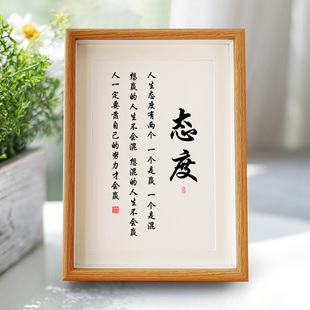 态度
人生态度有两个 一个是赢 一个是混
想赢的人生不会混 想混的人生不会赢
人一定要靠自己的努力才会赢